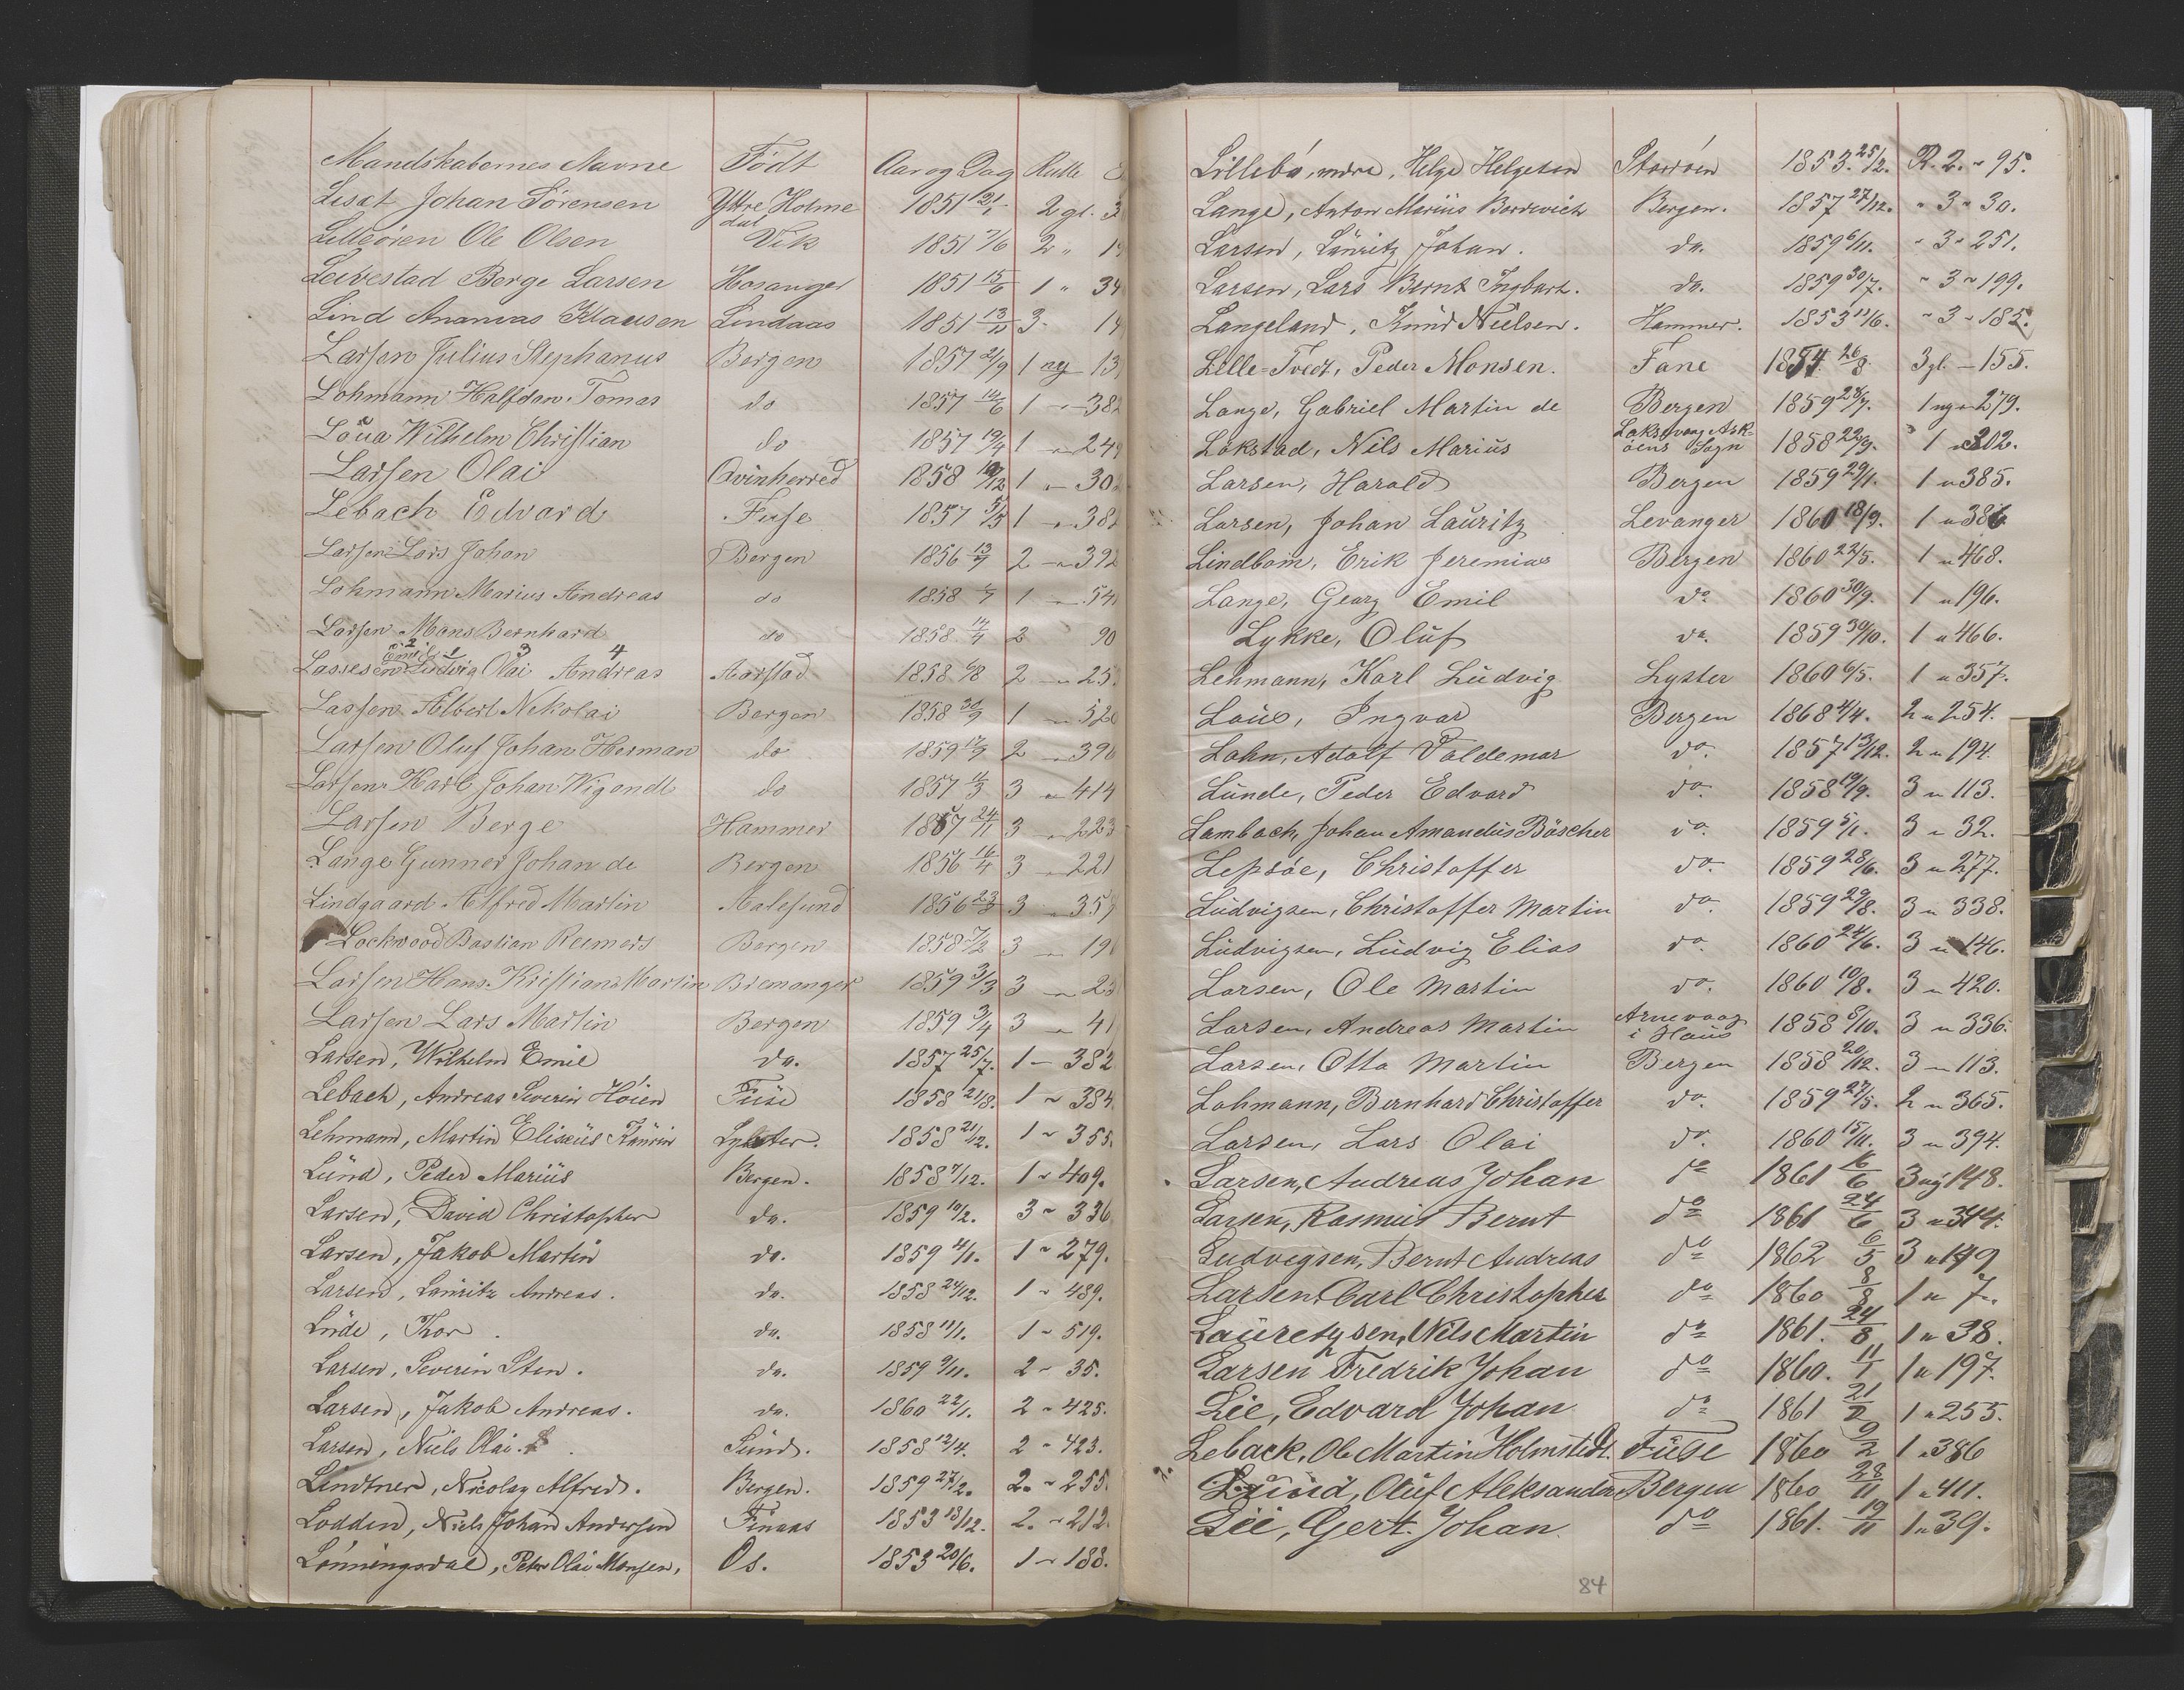 Mandskabernes Navne Födt Aar og Dag Rulle
Liset Johan Sörensen Yttre Holmedal 1851 21/1 2 gl. 3
Lilleören Ole Olsen Vik 1851 7/6 2 " 1
Leivestad Berge Larsen Hosanger 1851 15/6 1 " 34
Lind Ananias Klausen Lindaas 1851 13/11 3 - 1
Larsen Julius Stephanus Bergen 1857 2/9 1 ny 13
Lohmann Halfdan Tomas do 1857 10/6 1 - 38
Loua Wilhelm Christian do 1857 19/4 1 - 24
Larsen Olai Qvinherred 1858 /12 1 - 30
Lebach Edvard Fuse 1857 5/5 1 - 38
Larsen Lars Johan Bergen 1856 13/7 2 - 392
Lohmann Marius Andreas do 1858 1/7 1 - 54
Larsen Mons Bernhard do 1858 14/4 2 90
2 1 3 4
Lassesen Emil Ludvig Olai Andreas Aarstad 1858 6/8 2 - 25
Lassen Albert Nikolai Bergen 1858 30/9 1 - 52
Larsen Oluf Johan Herman do 1859 17/9 2 - 390
Larsen Karl Johan Wigandt do 1857 11/3 3 - 414
Larsen Berge Hammer 1857 24/11 3 - 223
Lange Gunner Johan de Bergen 1856 16/4 3 - 221
Lindgaard Alfred Martin Aalesund 1856 23/8 3 - 359
Lockwood Bastian Reimers Bergen 1858 7/2 3 - 19
Larsen Hans Kristian Martin Bremanger 1859 3/3 3 - 23
Larsen Lars Martin Bergen 1859 3/4 3 - 41
Larsen, Wilhelm Emil do. 1857 25/7. 1 - 382
Lebach, Andreas Severin Höien Füse 1858 21/8. 1 " 384
Lehmann, Martin Eliseüs Kaurin Lyster. 1858 21/12. 1 " 355.
Lünd, Peder Mariüs Bergen. 1858 7/12. 1 " 409.
Larsen, David Christopher do. 1859 19/2. 3 " 336
Larsen, Jakob Martin do. 1859 4/1. 1 " 279.
Larsen, Laüritz Andreas. do. 1858 24/12. 1 " 489.
Lüde, Thor. do. 1858 11/1. 1 " 519.
Larsen, Severin Sten. do. 1859 9/11. 2 " 35.
Larsen, Jakob Andreas. do. 1860 22/1. 2 " 425.
Larsen, Niels Olai. Sünd. 1858 12/4. 2 " 423.
Lindtner, Nicolay Alfred. Bergen. 1859 27/2. 2. " 255.
Lodden, Niels Johan Andersen Finaas 1853 13/12. 2. " 212.
Lönningsdal, Peter Olai Monsen, Os. 1853 20/6. 1 " 188.
Lillebö, indre, Helge Helgeson Stordöen 1853. 25/2. R. 2. " 95.
Lange, Anton Mariüs Borrevich Bergen. 1857 27/12. " 3 " 30.
Larsen, Laüritz Johan. do. 1859 6/11. " 3 " 251.
Larsen, Lars Bernt Ingbart. do. 1859 30/7. " 3 " 199.
Langeland, Knüd Nielsen. Hammer. 1853 11/6. " 3 " 185.
Lille-Tvedt, Peder Monsen. Fane 1854. 26/8. 3 gl. - 155.
Lange, Gabriel Martin de Bergen 1859 28/7. 1 ny " 279.
Lökstad, Nils Mariüs Laksevaag Askøens Sogn 1858 22/9. 1 " 302.
Larsen, Harald Bergen 1859 29/1. 1 " 385.
Larsen, Johan Laüritz Levanger 1860 18/9. 1 " 386
Lindbom, Erik Jeremias Bergen 1860 22/5. 1 " 468.
Lange, Georg Emil do. 1860 30/9. 1 " 196.
Lykke, Olüf do. 1859 30/10. 1 " 466.
Lehmann, Karl Lüdvig Lyster 1860 6/5. 1 " 357.
Loüs, Ingvar Bergen 1868 4/4. 2 " 254.
Lohn, Adolf Valdemar do. 1857 13/12. 2 " 194.
Lünde, Peder Edvard do. 1858 19/9. 3 " 113.
Lambach, Johan Amandüs Böscher do. 1859 5/1. 3 " 32.
Lepsöe, Christoffer do. 1859 28/6. 3 " 277.
Lüdvigsen, Christoffer Martin do. 1859 29/8. 3 " 338.
Lüdvigsen, Lüdvig Elias do. 1860 24/6. 3 " 146.
Larsen, Ole Martin do. 1860 10/8. 3 " 420.
Larsen, Andreas Martin Arnevaag i Haüs 1858 8/10. 3 " 336.
Larsen, Otto Martin Bergen 1858 20/12. 3 " 113.
Lohmann, Bernhard Christoffer do. 1859 27/5. 2 " 365.
Larsen, Lars Olai do. 1860 15/11. 3 " 394.
Larsen, Andreas Johan do 1861 16/6 3 ny 148.
Larsen, Rasmüs Bernt do 1861 24/6 3 " 314.
Ludvigsen, Bernt Andreas do 1862 6/5 3 " 149
Larsen, Carl Christopher do 1860 8/8 1 " 7.
Lauretzsen, Nils Martin do 1861. 24/8 1 " 38.
Larsen Fredrik Johan do 1860. 11/1 1 " 197.
Lie, Edvard Johan do 1861 21/2 1 " 255.
Leback, Ole Martin Holmstedt. Füse 1860 9/2 1 " 386
Lund, Olüf Aleksander Bergen 1860 28/11 1 " 411.
Lie, Gert. Johan do 1861. 19/11 1 " 39.
84